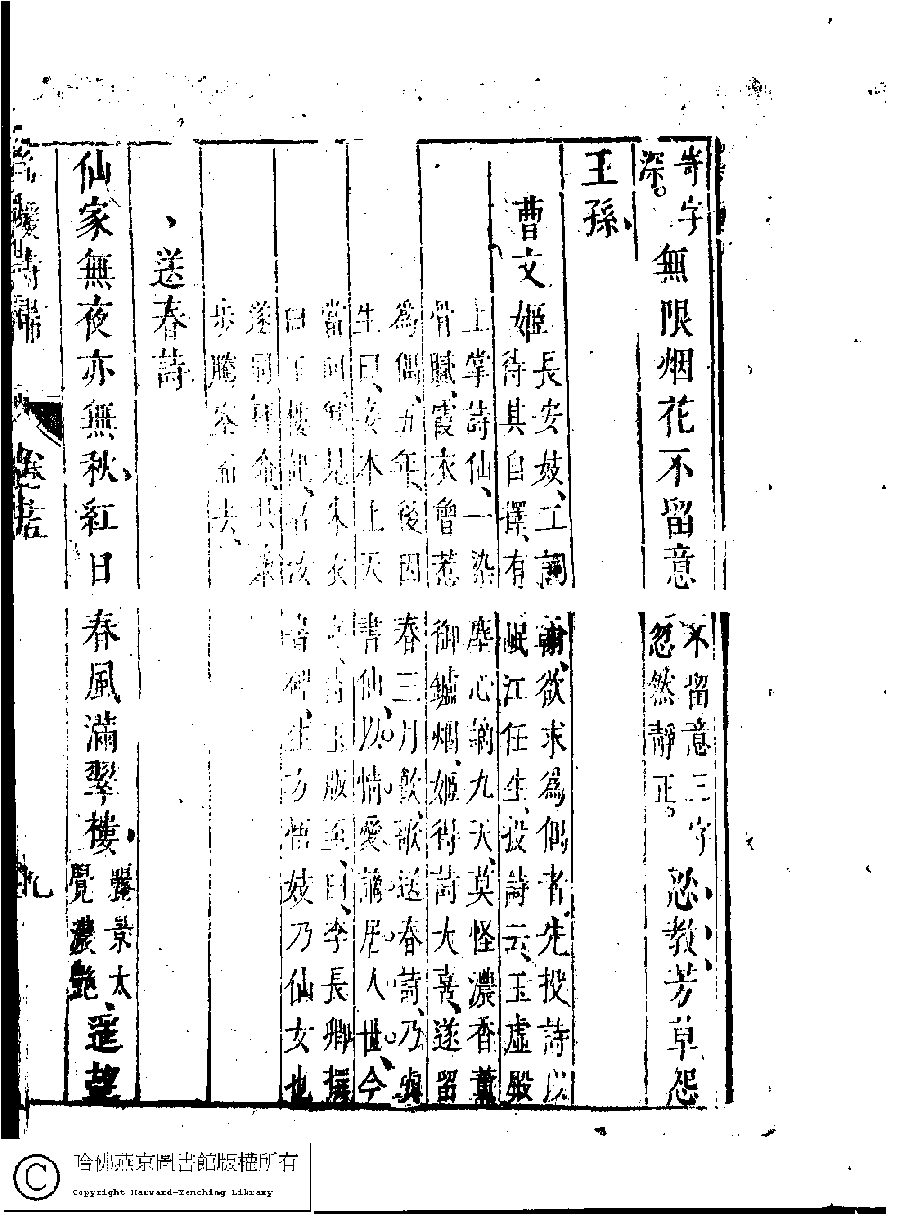 寄字
深。
無限烟花不留意
不留意三字
忽然靜正。
忍教芳草怨
王孫、
曹文姬
長安妓、工詞翰、欲求爲偶者、先投詩以
待其自擇、有岷江任生、投詩云、玉虛殿
上掌詩仙、一染塵心謫九天、莫怪濃香薰
骨膩、霞衣曾惹御罏烟、姬得詩大喜、遂留
爲偶、五年後因春三月飲、歌送春詩、乃與
生曰、妾本上天書仙、以情愛謫居人世、今
當回、見朱衣持玉版至、曰、李長卿撰
白玉樓記、召汝書碑、生方悟妓乃仙女也
遂同拜命、共乘
步騰空而去、
送春詩
仙家無夜亦無秋、紅日春風滿翠樓、
麗景太
覺濃艷、
遥望
名媛詩歸 卷十五 九
哈佛燕京圖書館版權所有
Copyright Harvard-Yenching Library